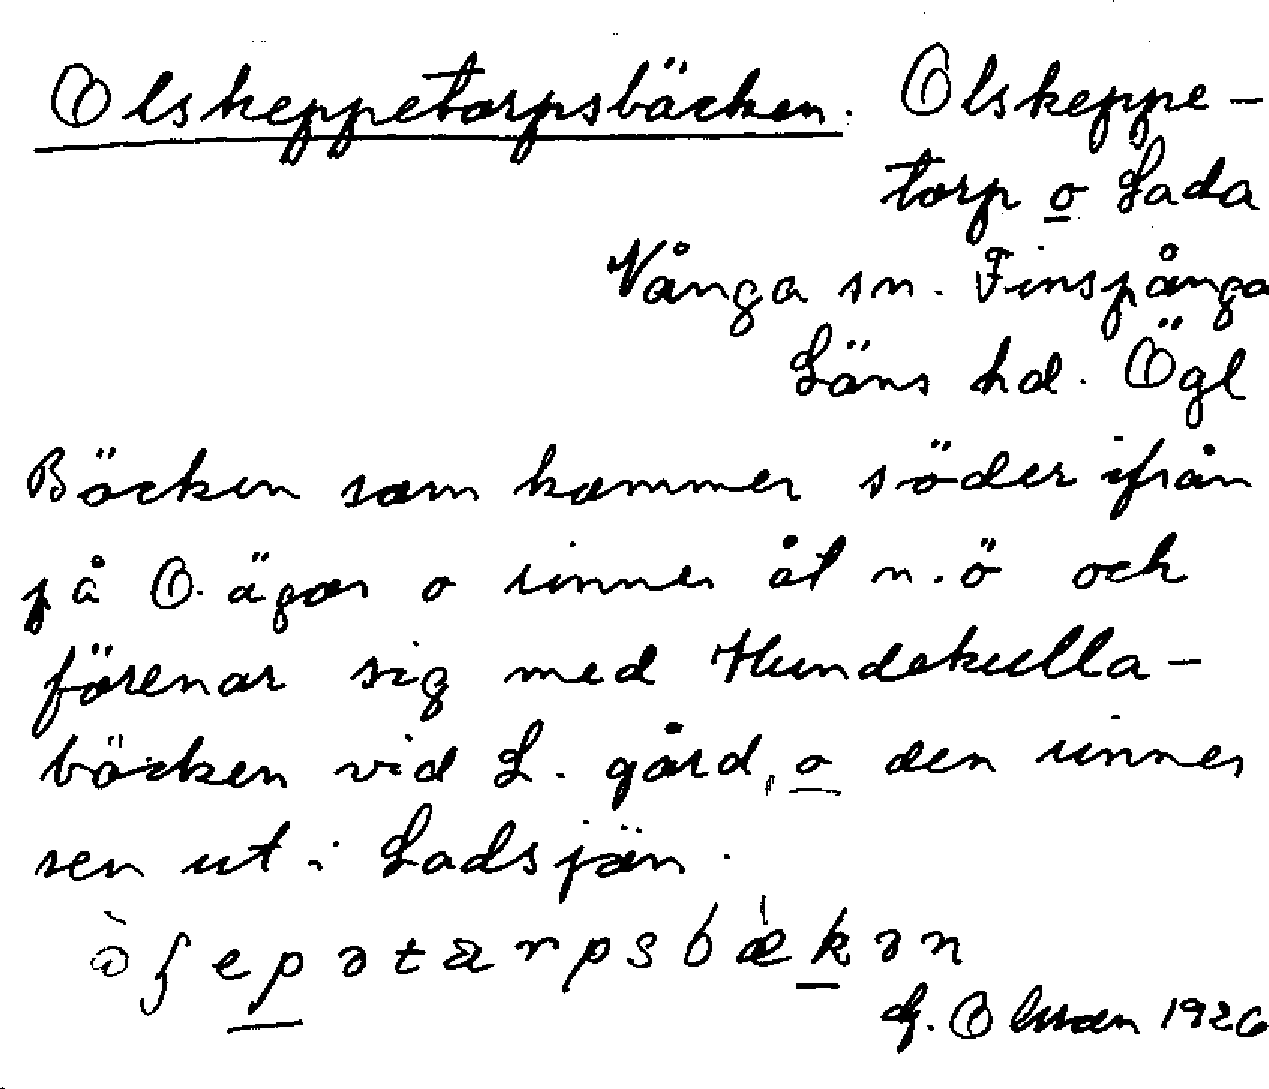 Olskeppetorpsbäcken. Olskeppe-
torp o Lada
Vånga sn. Finspånga
Läns hd. Ögl
Bäcken som kommer söder ifrån
på O. ägor o rinner åt n.ö och
förenar sig med Hundekulla-
bäcken vid L. gård, o den rinner
sen ut i Ladsjön.
G. Olsson 1926